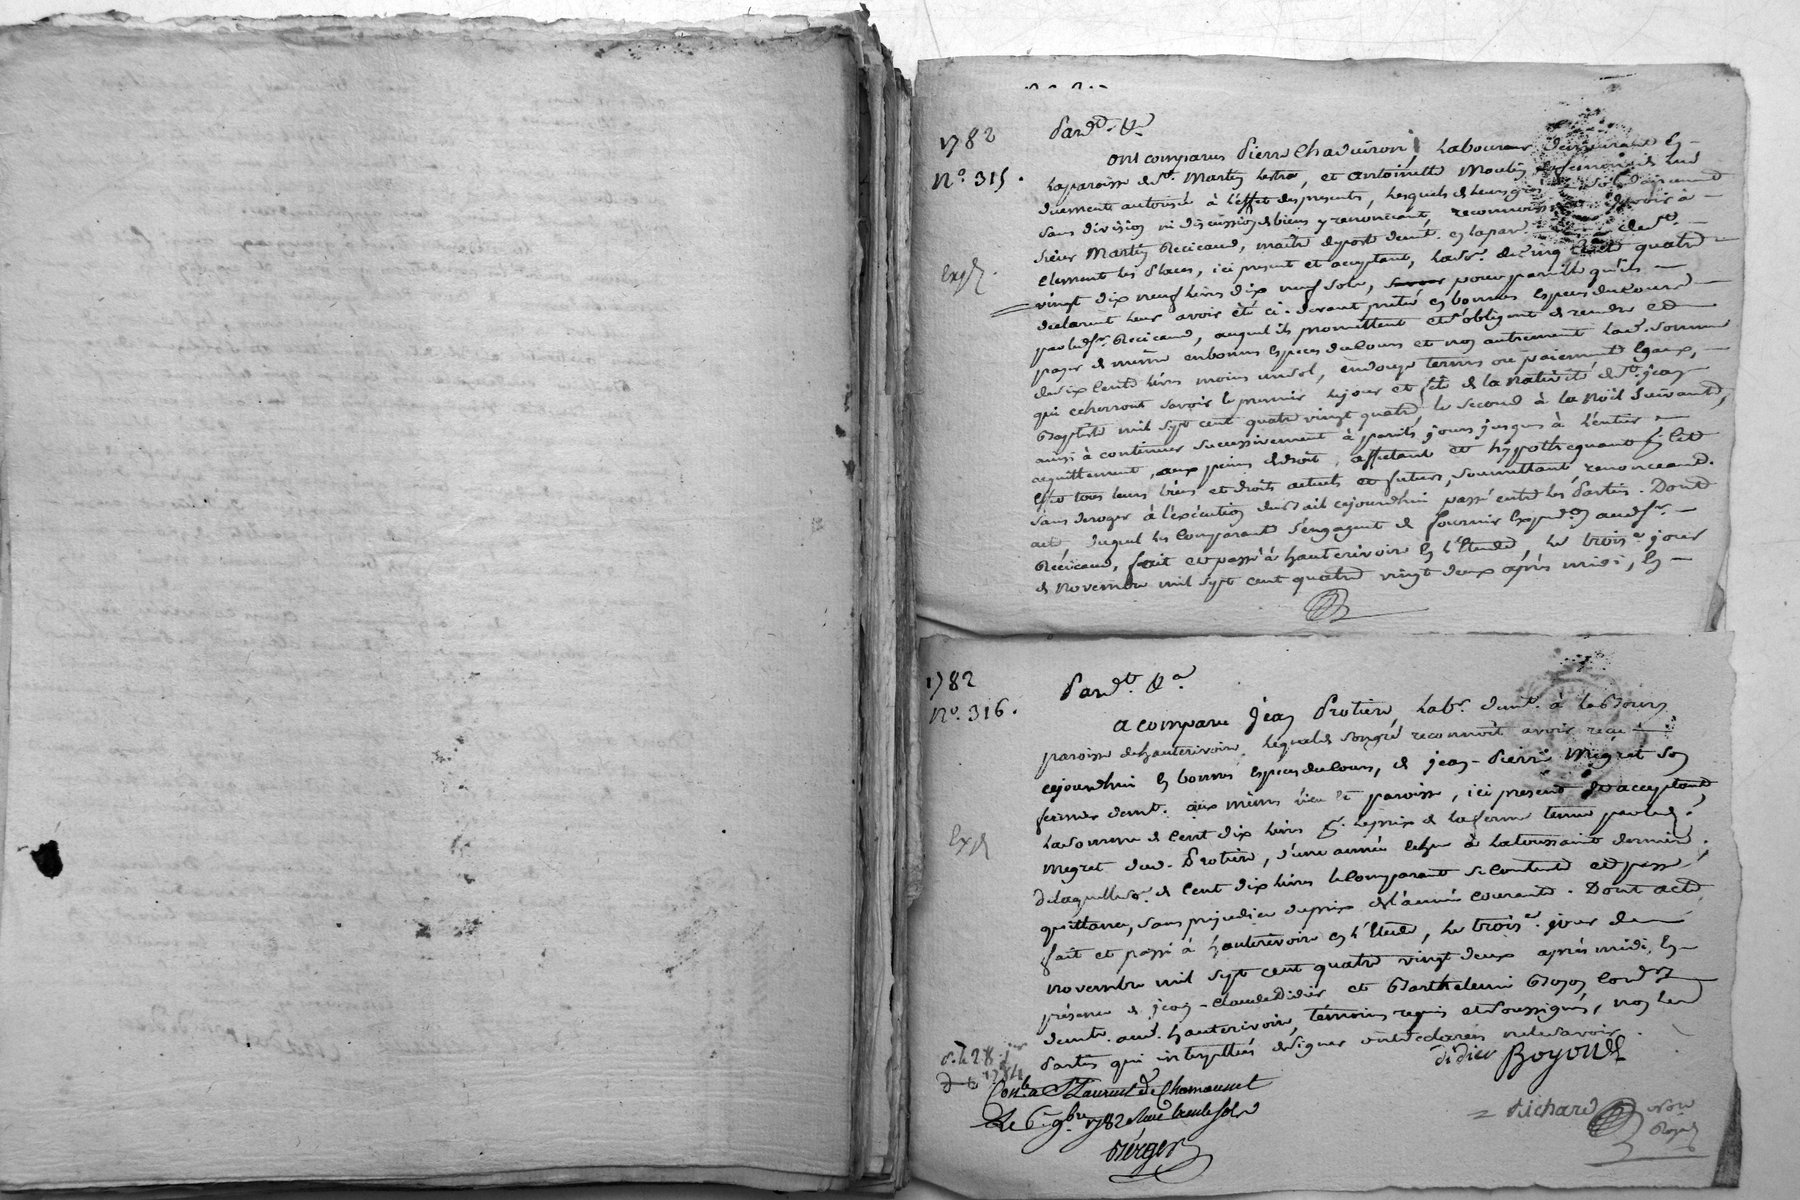 1782
N.° 315.
Pard.t &a
ont comparus Pierre Chaduiron, Laboureur demeurant En
La paroisse de St. Martin Lestra, et Antoinette Moulin sa femme de lui
duement autorisée à L'effet des presents, Lesquels de leurs gré
sans division ni discussion de biens y renoncant, reconnoissent devoir à
sieur Martin Recicaud, maitre de poste demt. en la par de St.
Clement les Places, ici present et acceptant, La so.e de cinq Cent quatre
Expd.
vingt dix neuf Livres dix neuf sols, pour pareille qu'ils
declarent leur avoir été ci-devant prêté en bonnes Especes du Cours
par led. sr. Recicaud, auquel ils promettent et s'obligent de rendre et
payer de même en bonnes Especes du Cours et non autrement Lad. somme
de six Cents Livres moins un sol, en douze termes ou paiements Egaux,
qui echerront savoir le premier le jour et fête de la nativité de St. jean
Baptiste mil sept cent quatre vingt quatre, le second à la Noël suivante,
ainsi à continuer successivement à pareils jours jusques à L'entier
acquittement, aux peines de droit, affectant et hypothequant
tous leurs biens et droits actuels et futurs, soumettant renonceant.
sans deroger à l'exécution du Bail cejourd'hui passé entre les Parties. Dont
acte duquel les Comparants s'engagent de fournir Expedon. aud. sr.
Récicaud, fait et passé à hauterivoire En L'Etude, Le trois.e jour
de Novembre mil sept cent quatre vingt deux après midi, En
1782
N.° 316.
Pard.t &a
a comparu Jean Protiere Labr. demt. à
paroisse de hauterivoire, Lequel de son gré reconnoit avoir reçu
cejourd'hui En bonnes Especes du Cours, de jean-Pierre Megret son
fermier demt. aux mêmes Lieu et paroisse, ici present et acceptant
La somme de Cent dix Livres pr. Le prix de La ferme tenue par led.
Expd
Megret dud. Protiere, d'une année echue à La toussaint derniere,
De laquelle so.e de Cent dix Livres Le Comparant se contente et passe
quittance, sans prejudice du prix de L'année courante. Dont acte
fait et passé à hauterivoire en L'Etude, Le trois.e jour de
novembre mil sept cent quatre vingt deux après midi, En
présence de jean-Claude Didier et Barthelemi Boyon
demts. aud. hauterivoire, témoins requis et soussignés, non les
Parties qui interpellées de signer ont declarées ne le savoir.
didier Boyon
Conlé a St Laurent de Chamousset
Le 6 9bre 1782
Berger
Richard